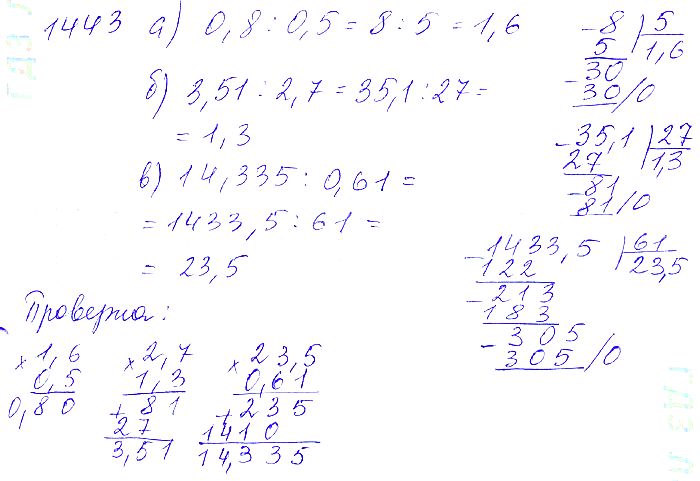 1443 а) 0,8 : 0,5 = 8 : 5 = 1,6
б) 3,51 : 2,7 = 35,1 : 27 =
= 1,3
в) 14,335 : 0,61 =
= 1433,5 : 61 =
= 23,5
-8 | 5
5 | 1,6
-30
30/0
-35,1 | 27
27 | 1,3
-81
81/0
-1433,5 | 61
122 | 23,5
-213
183
-305
305/0
Проверка:
×1,6
0,5
0,80
×2,7
1,3
+81
27
3,51
×23,5
0,61
+235
1410
14,335